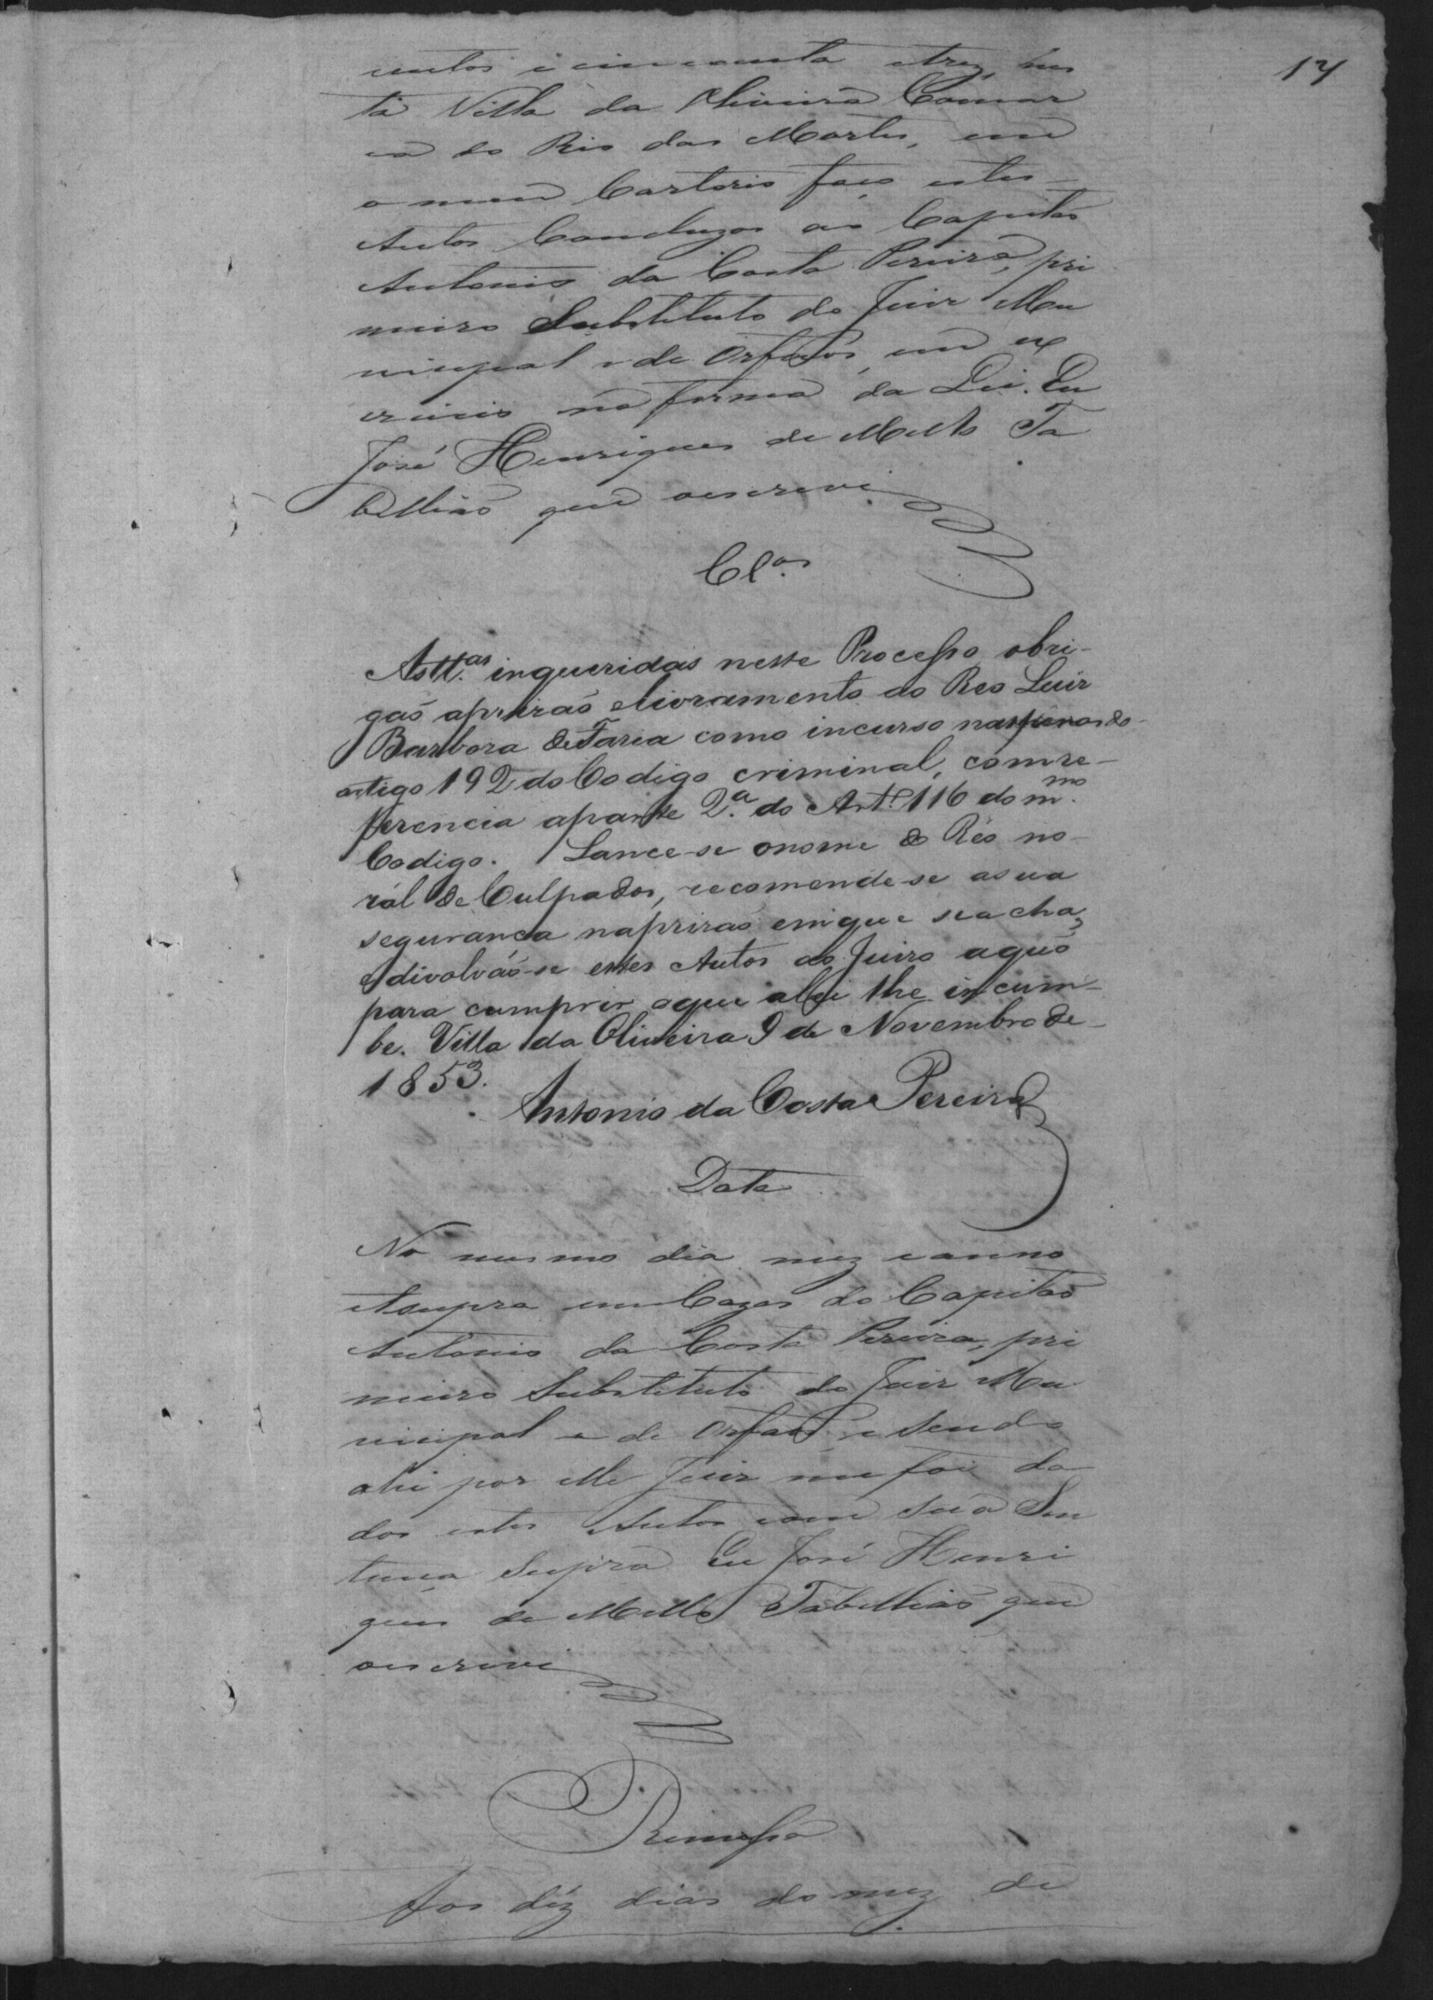 14
centos e cincoenta e trez, nes
ta Villa da Oliveira Comar
ca do Rio das Mortes, em
o meu Cartorio faço estes
Autos Concluzos ao Capitão
Antonio da Costa Pereira, pri
meiro Substituto do Juiz Mu
nicipal e de Orfãos, em ex
ercicio na forma da Lei. Eu
José Henriques de Mello Ta
bellião que oescrevi
Cl.os
Astt.as inqueridas neste Processo obri-
gaõ aprizaõ elivramento ao Reo Luiz
Barboza de Faria como incurso naspenas do
artigo 192 do Codigo criminal, comre-
ferencia aparte 2.a do Art.º 116 do m.mo
Codigo. Lance-se onome do Réo no
ról de Culpados, recomende-se asua
segurança naprizaõ emque seacha,
edivolváo-se estes Autos ao Juizo aquo
para cumprir oque alei lhe incum-
be. Villa da Oliveira 9 de Novembro de
1853.
Antonio da Costa Pereira
Data
No mesmo dia mez eanno
etsupra em Cazas do Capitão
Antonio da Costa Pereira, pri
meiro Substituto do Juiz Mu
nicipal e de Orfãos, e sendo
ahi por elle Juiz me foi da
dos estes Autos com sua Sen
tença Supra Eu José Henri
ques de Mello Tabellião que
oescrevi
Remessa
Aos déz dias do mez de